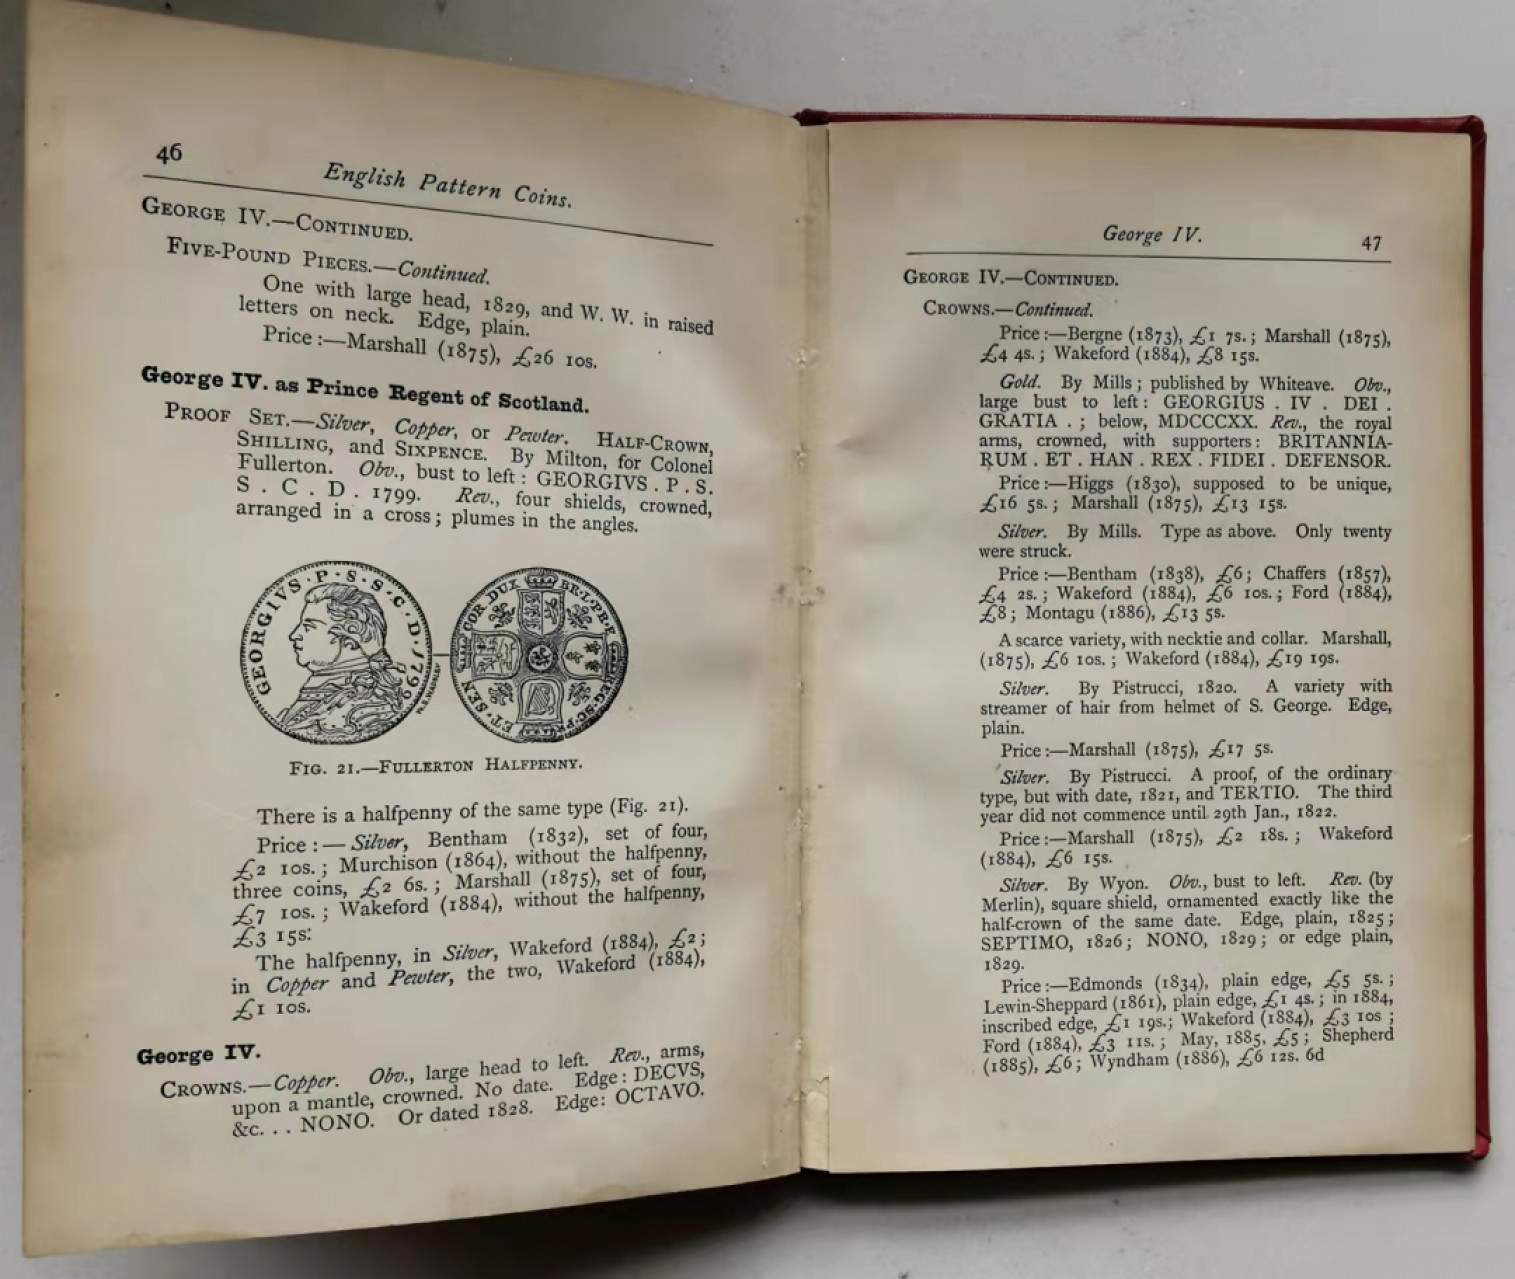 46
English Pattern Coins.
GEORGE IV.—CONTINUED.
FIVE-POUND PIECES.—Continued.
One with large head, 1829, and W. W. in raised
letters on neck. Edge, plain.
Price :—Marshall (1875), £26 10s.
George IV. as Prince Regent of Scotland.
PROOF SET.—Silver, Copper, or Pewter. HALF-CROWN,
SHILLING, and SIXPENCE. By Milton, for Colonel
Fullerton. Obv., bust to left : GEORGIVS . P . S.
S . C . D . 1799. Rev., four shields, crowned,
arranged in a cross ; plumes in the angles.
GEORGIVS · P · S · S · C · D · 1799
COR · DUX BR · L · PR · E REG · SC · PR ET · SEN
FIG. 21.—FULLERTON HALFPENNY.
There is a halfpenny of the same type (Fig. 21).
Price : — Silver, Bentham (1832), set of four,
£2 10s. ; Murchison (1864), without the halfpenny,
three coins, £2 6s. ; Marshall (1875), set of four,
£7 10s. ; Wakeford (1884), without the halfpenny,
£3 15s.
The halfpenny, in Silver, Wakeford (1884), £2 ;
in Copper and Pewter, the two, Wakeford (1884),
£1 10s.
George IV.
CROWNS.—Copper. Obv., large head to left. Rev., arms,
upon a mantle, crowned. No date. Edge : DECVS,
&c. . . NONO. Or dated 1828. Edge : OCTAVO.
George IV.
47
GEORGE IV.—CONTINUED.
CROWNS.—Continued.
Price :—Bergne (1873), £1 7s. ; Marshall (1875),
£4 4s. ; Wakeford (1884), £8 15s.
Gold. By Mills ; published by Whiteave. Obv.,
large bust to left : GEORGIUS . IV . DEI .
GRATIA . ; below, MDCCCXX. Rev., the royal
arms, crowned, with supporters : BRITANNIA-
RUM . ET . HAN . REX . FIDEI . DEFENSOR.
Price :—Higgs (1830), supposed to be unique,
£16 5s. ; Marshall (1875), £13 15s.
Silver. By Mills. Type as above. Only twenty
were struck.
Price :—Bentham (1838), £6 ; Chaffers (1857),
£4 2s. ; Wakeford (1884), £6 10s. ; Ford (1884),
£8 ; Montagu (1886), £13 5s.
A scarce variety, with necktie and collar. Marshall,
(1875), £6 10s. ; Wakeford (1884), £19 19s.
Silver. By Pistrucci, 1820. A variety with
streamer of hair from helmet of S. George. Edge,
plain.
Price :—Marshall (1875), £17 5s.
Silver. By Pistrucci. A proof, of the ordinary
type, but with date, 1821, and TERTIO. The third
year did not commence until 29th Jan., 1822.
Price :—Marshall (1875), £2 18s. ; Wakeford
(1884), £6 15s.
Silver. By Wyon. Obv., bust to left. Rev. (by
Merlin), square shield, ornamented exactly like the
half-crown of the same date. Edge, plain, 1825 ;
SEPTIMO, 1826 ; NONO, 1829 ; or edge plain,
1829.
Price :—Edmonds (1834), plain edge, £5 5s. ;
Lewin-Sheppard (1861), plain edge, £1 4s. ; in 1884,
inscribed edge, £1 19s. ; Wakeford (1884), £3 10s ;
Ford (1884), £3 11s. ; May, 1885, £5 ; Shepherd
(1885), £6 ; Wyndham (1886), £6 12s. 6d